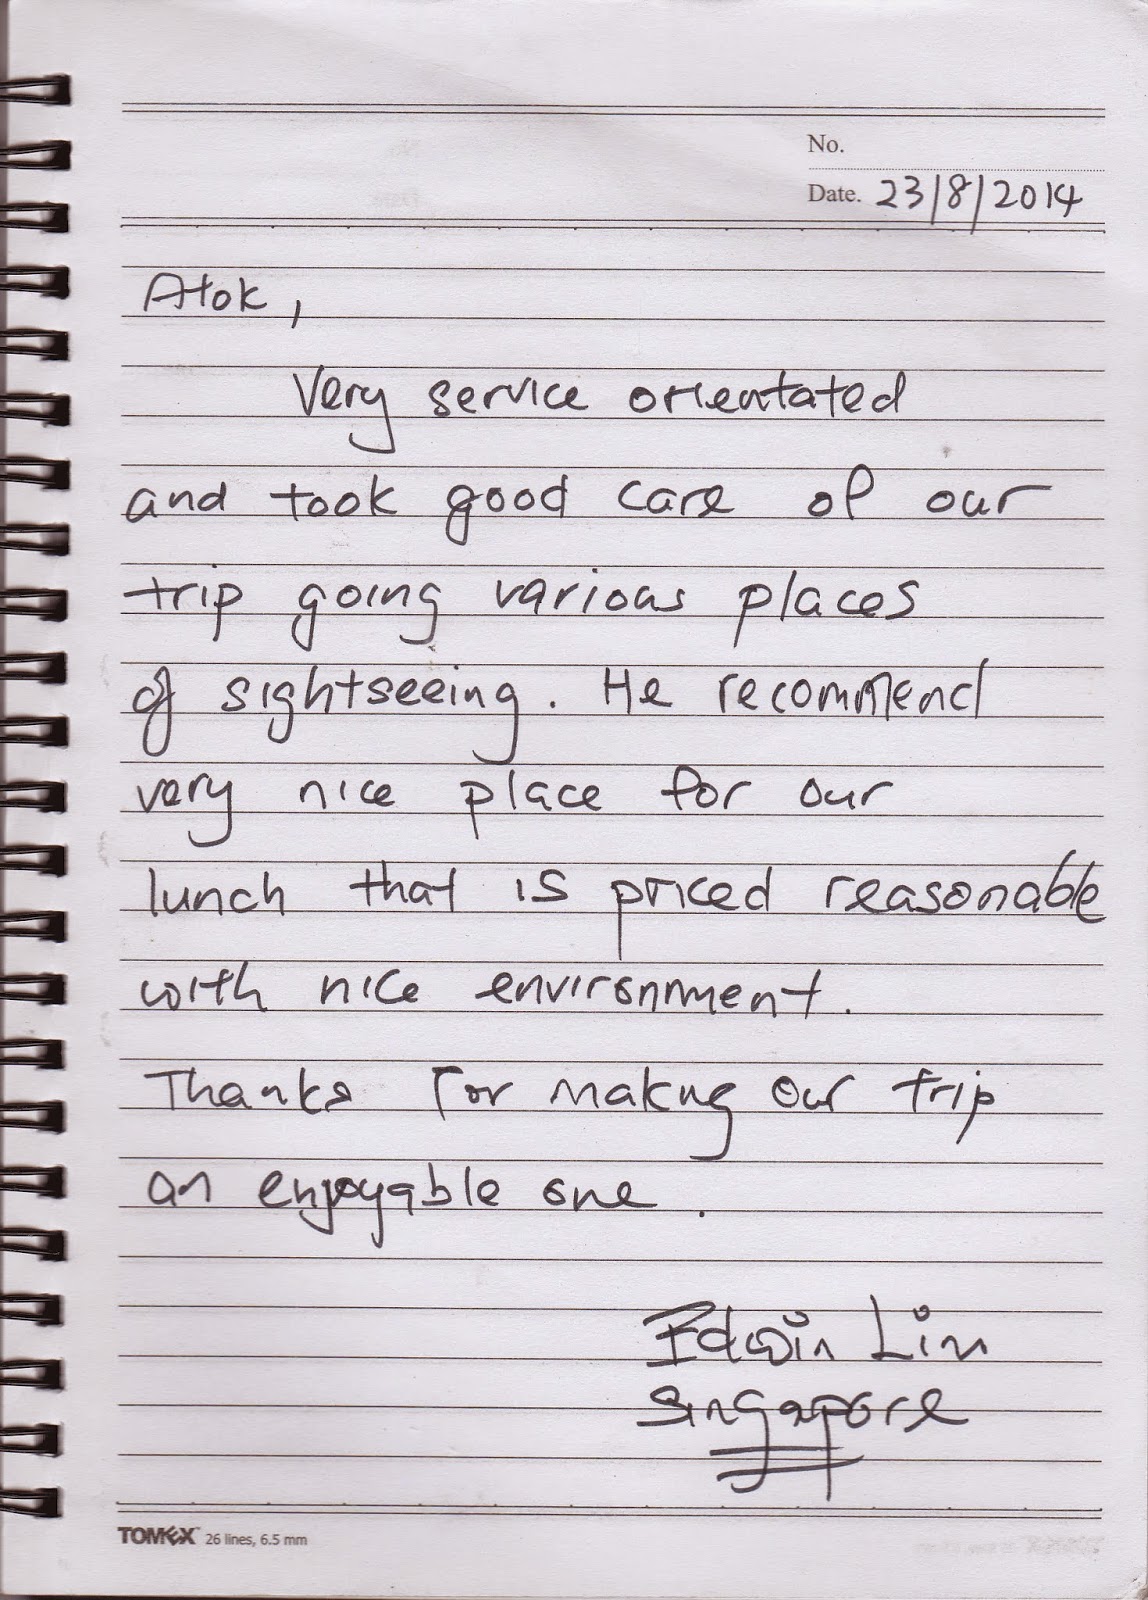 No.
Date. 23/8/2014
Atok,
Very service orientated
and took good care of our
trip going various places
of sightseeing. He recommend
very nice place for our
lunch that is priced reasonable
with nice environment.
Thanks for making our trip
an enjoyable one.
Edwin Lim
Singapore
TOMEX 26 lines, 6.5 mm